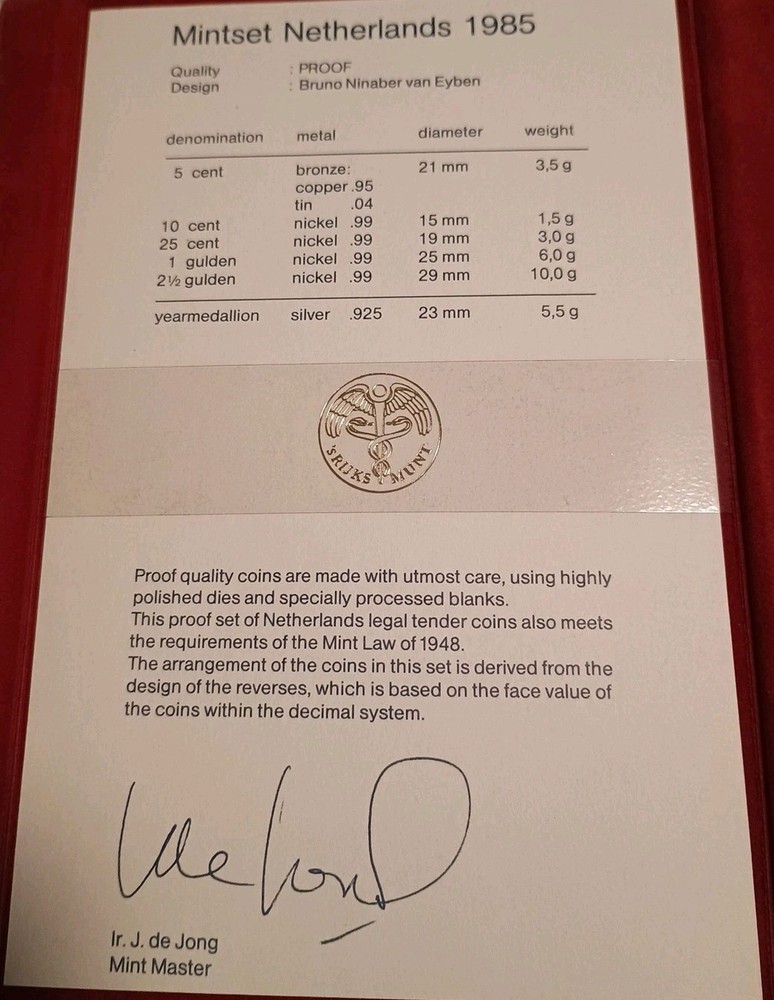 Mintset Netherlands 1985
Quality : PROOF
Design : Bruno Ninaber van Eyben
denomination metal diameter weight
5 cent bronze: 21 mm 3,5 g
copper .95
tin .04
10 cent nickel .99 15 mm 1,5 g
25 cent nickel .99 19 mm 3,0 g
1 gulden nickel .99 25 mm 6,0 g
2½ gulden nickel .99 29 mm 10,0 g
yearmedallion silver .925 23 mm 5,5 g
'SRIJKS MUNT
Proof quality coins are made with utmost care, using highly
polished dies and specially processed blanks.
This proof set of Netherlands legal tender coins also meets
the requirements of the Mint Law of 1948.
The arrangement of the coins in this set is derived from the
design of the reverses, which is based on the face value of
the coins within the decimal system.
Ir. J. de Jong
Mint Master